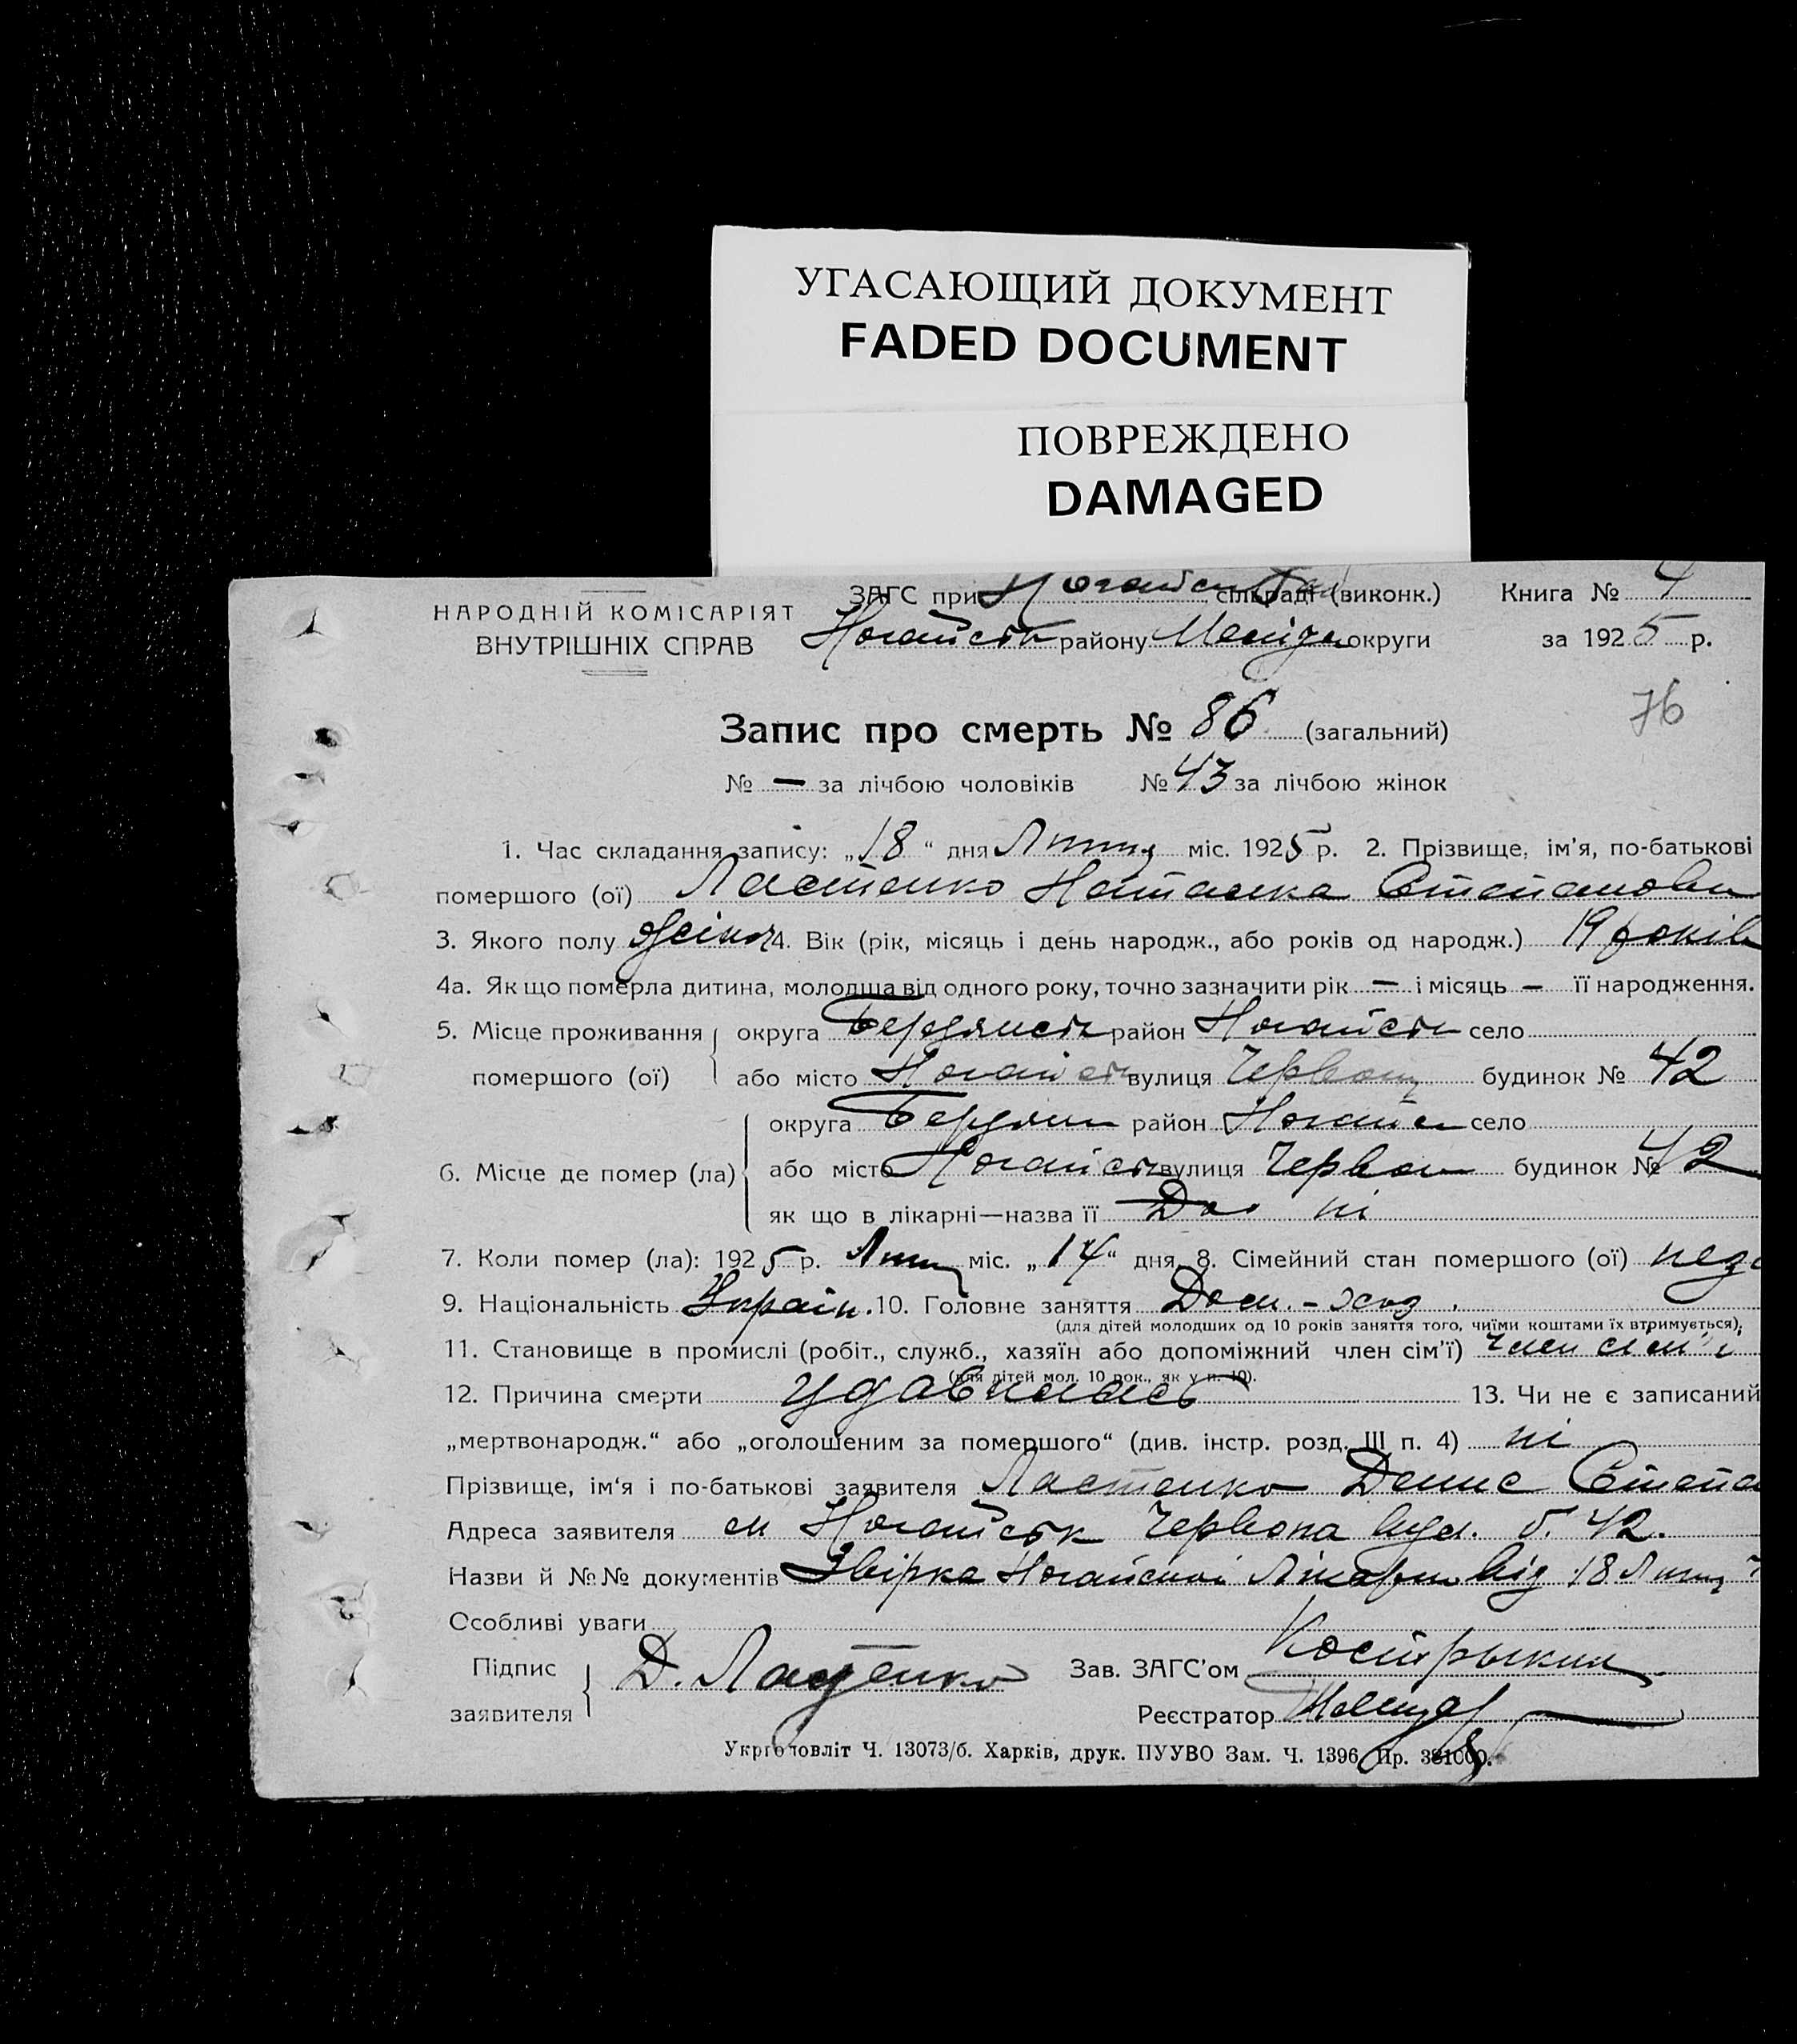 УГАСАЮЩИЙ ДОКУМЕНТ
FADED DOCUMENT
ПОВРЕЖДЕНО
DAMAGED
НАРОДНІЙ КОМІСАРІЯТ
ВНУТРІШНІХ СПРАВ
ЗАГС при сільраді (виконк.) Книга № 4
Ногайськ району округи за 1925 р.
76
Запис про смерть № 86 (загальний)
№ — за лічбою чоловіків № 43 за лічбою жінок
1. Час складання запису: „18“ дня міс. 1925 р. 2. Прізвище, ім'я, по-батькові
помершого (ої) Ластенко Наталка Степанови
3. Якого полу жіноч 4. Вік (рік, місяць і день народж., або років од народж.) 19 років
4а. Як що померла дитина, молодша від одного року, точно зазначити рік — і місяць — її народження.
5. Місце проживання округа Бердянськ район Ногайськ село
помершого (ої) або місто Ногайськ вулиця будинок № 42
округа Бердян район Ногайс село
6. Місце де помер (ла) або місто Ногайськ вулиця Червон будинок № 42
як що в лікарні—назва її ні
7. Коли помер (ла): 1925 р. міс. „14“ дня. 8. Сімейний стан помершого (ої)
9. Національність Україн. 10. Головне заняття Дом. - хоз.
(для дітей молодших од 10 років заняття того, чиїми коштами їх втримується).
11. Становище в промислі (робіт., служб., хазяїн або допоміжний член сім'ї) член сім'ї
(для дітей мол. 10 рок., як у п. 10).
12. Причина смерти удавилась 13. Чи не є записаний
„мертвонародж.“ або „оголошеним за помершого“ (див. інстр. розд. III п. 4) ні
Прізвище, ім'я і по-батькові заявителя Ластенко Денис Степа
Адреса заявителя м Ногайськ Червона вул. б. 42.
Назви й №№ документів Ногайської від 18
Особливі уваги
Підпис Д. Ластенко Зав. ЗАГС'ом Кострыкин
заявителя Реєстратор
Укрголовліт Ч. 13073/б. Харків, друк. ПУУВО Зам. Ч. 1396. Пр. 381000.